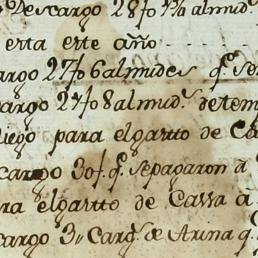 Descargo 28fo 1½ almud.s
erta erte año
argo 27fo 6 almudes q.e se
cargo 2 fo 8 almud.s de tem
Diego para el gartto de Ca
cargo 30 f.s q.e se pagaron à
ra el gartto de Cassa à
cargo 3 Carg.s de Arina q.